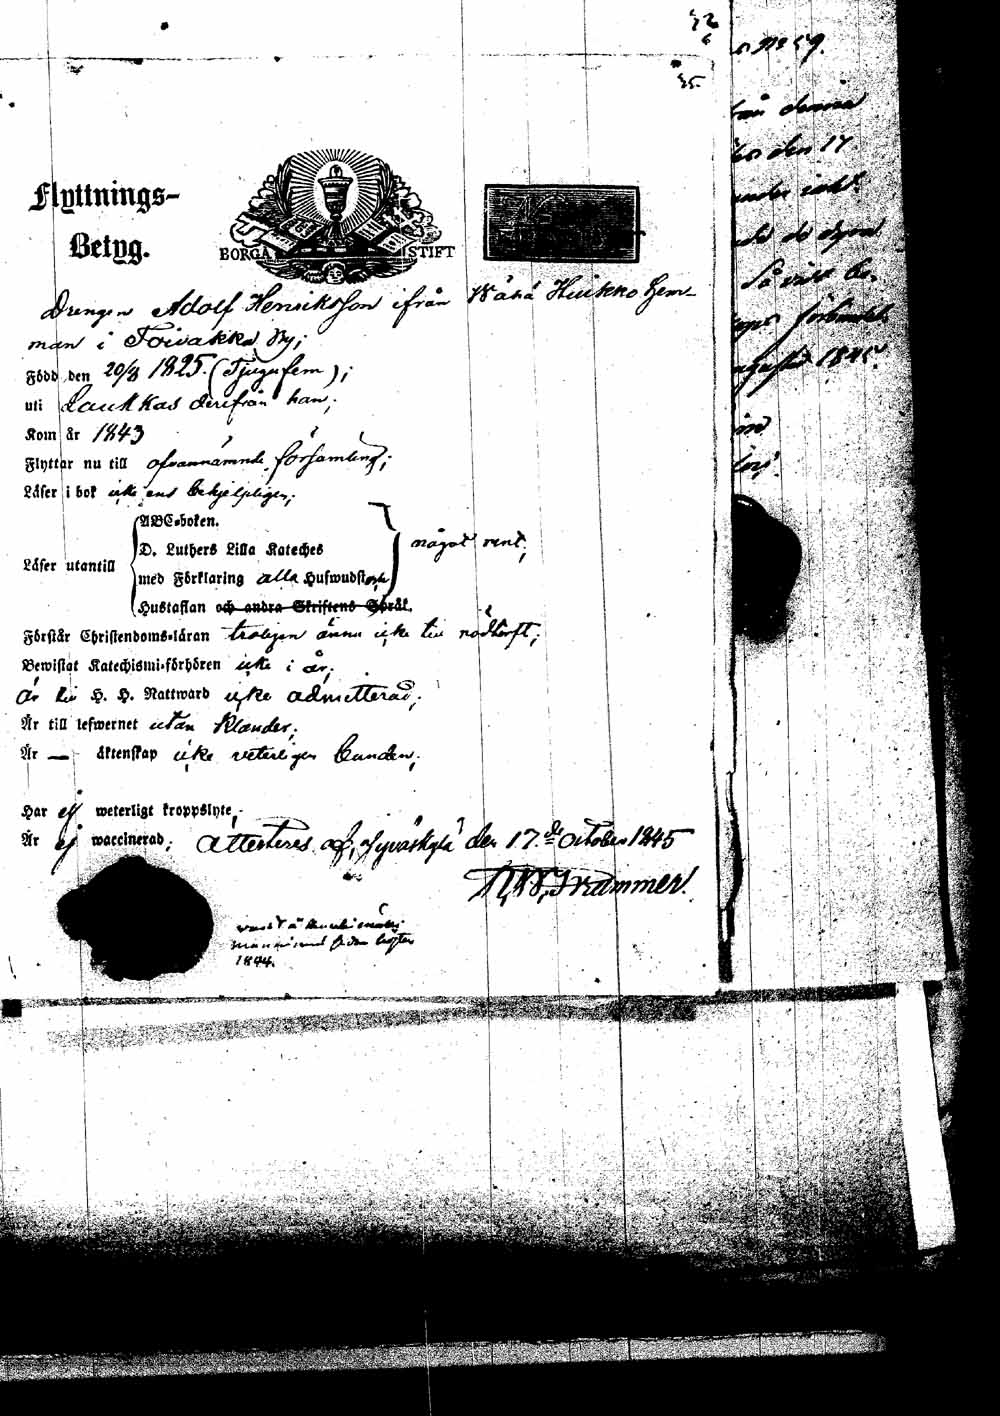 32
6
35.
Flyttnings-
Betyg.
BORGÅ STIFT
Drengen Adolf Henriksson ifrån Wähä Huikko hem-
man i Toivakka By;
Född den 20/8 1825. (Tjugufem);
uti Laukkas derifrån han;
Kom år 1843
Flyttar nu till ofvannämnde församling;
Läser i bok icke ens behjelpligen;
Läser utantill
ABC-boken.
D. Luthers Lilla Kateches
med Förklaring alla Hufwudst
Hustaflan och andra Skriftens Språk.
något rent;
Förstår Christendoms-läran troligen ännu icke till nödtorft;
Bewistat Katechismi-förhören icke i år;
Är till H. H. Nattward icke admitterad;
Är till lefwernet utan klander;
Är — äktenskap icke veterligen bunden;
Har ej weterligt kroppslyte;
Är ej waccinerad; Attesteras af, Jyväskylä den 17.de October 1845
1844.
No 59.
från denna
den 17
Så väl be-
1845.